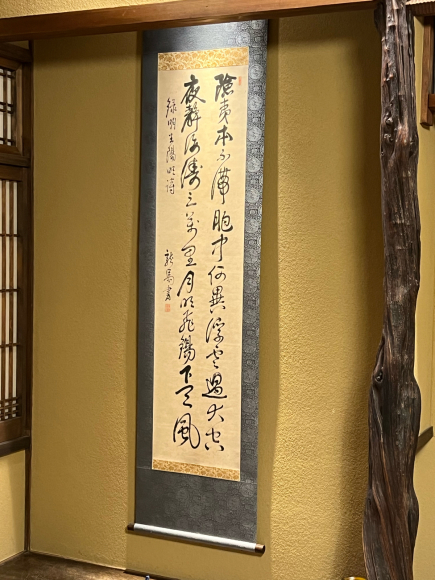 險夷本不滞胸中何異浮雲過大空
夜靜海濤三萬里月明飛錫下天風
録明王陽明詩
書